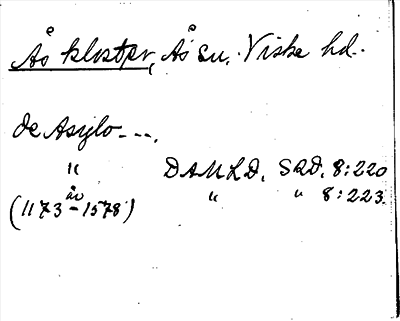 Ås kloster, Ås su. Viske hd.
de Asylo - - -.
" DAMLD. SRD. 8:220
(1173 - år 1578) " " 8:223.